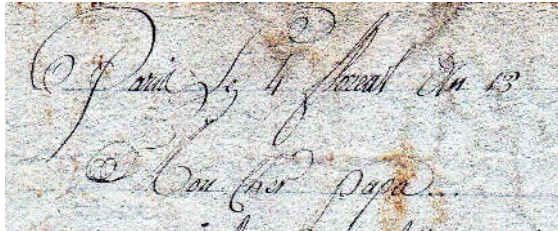 Paris Le 4 floreal An 13
Mon Cher papa...